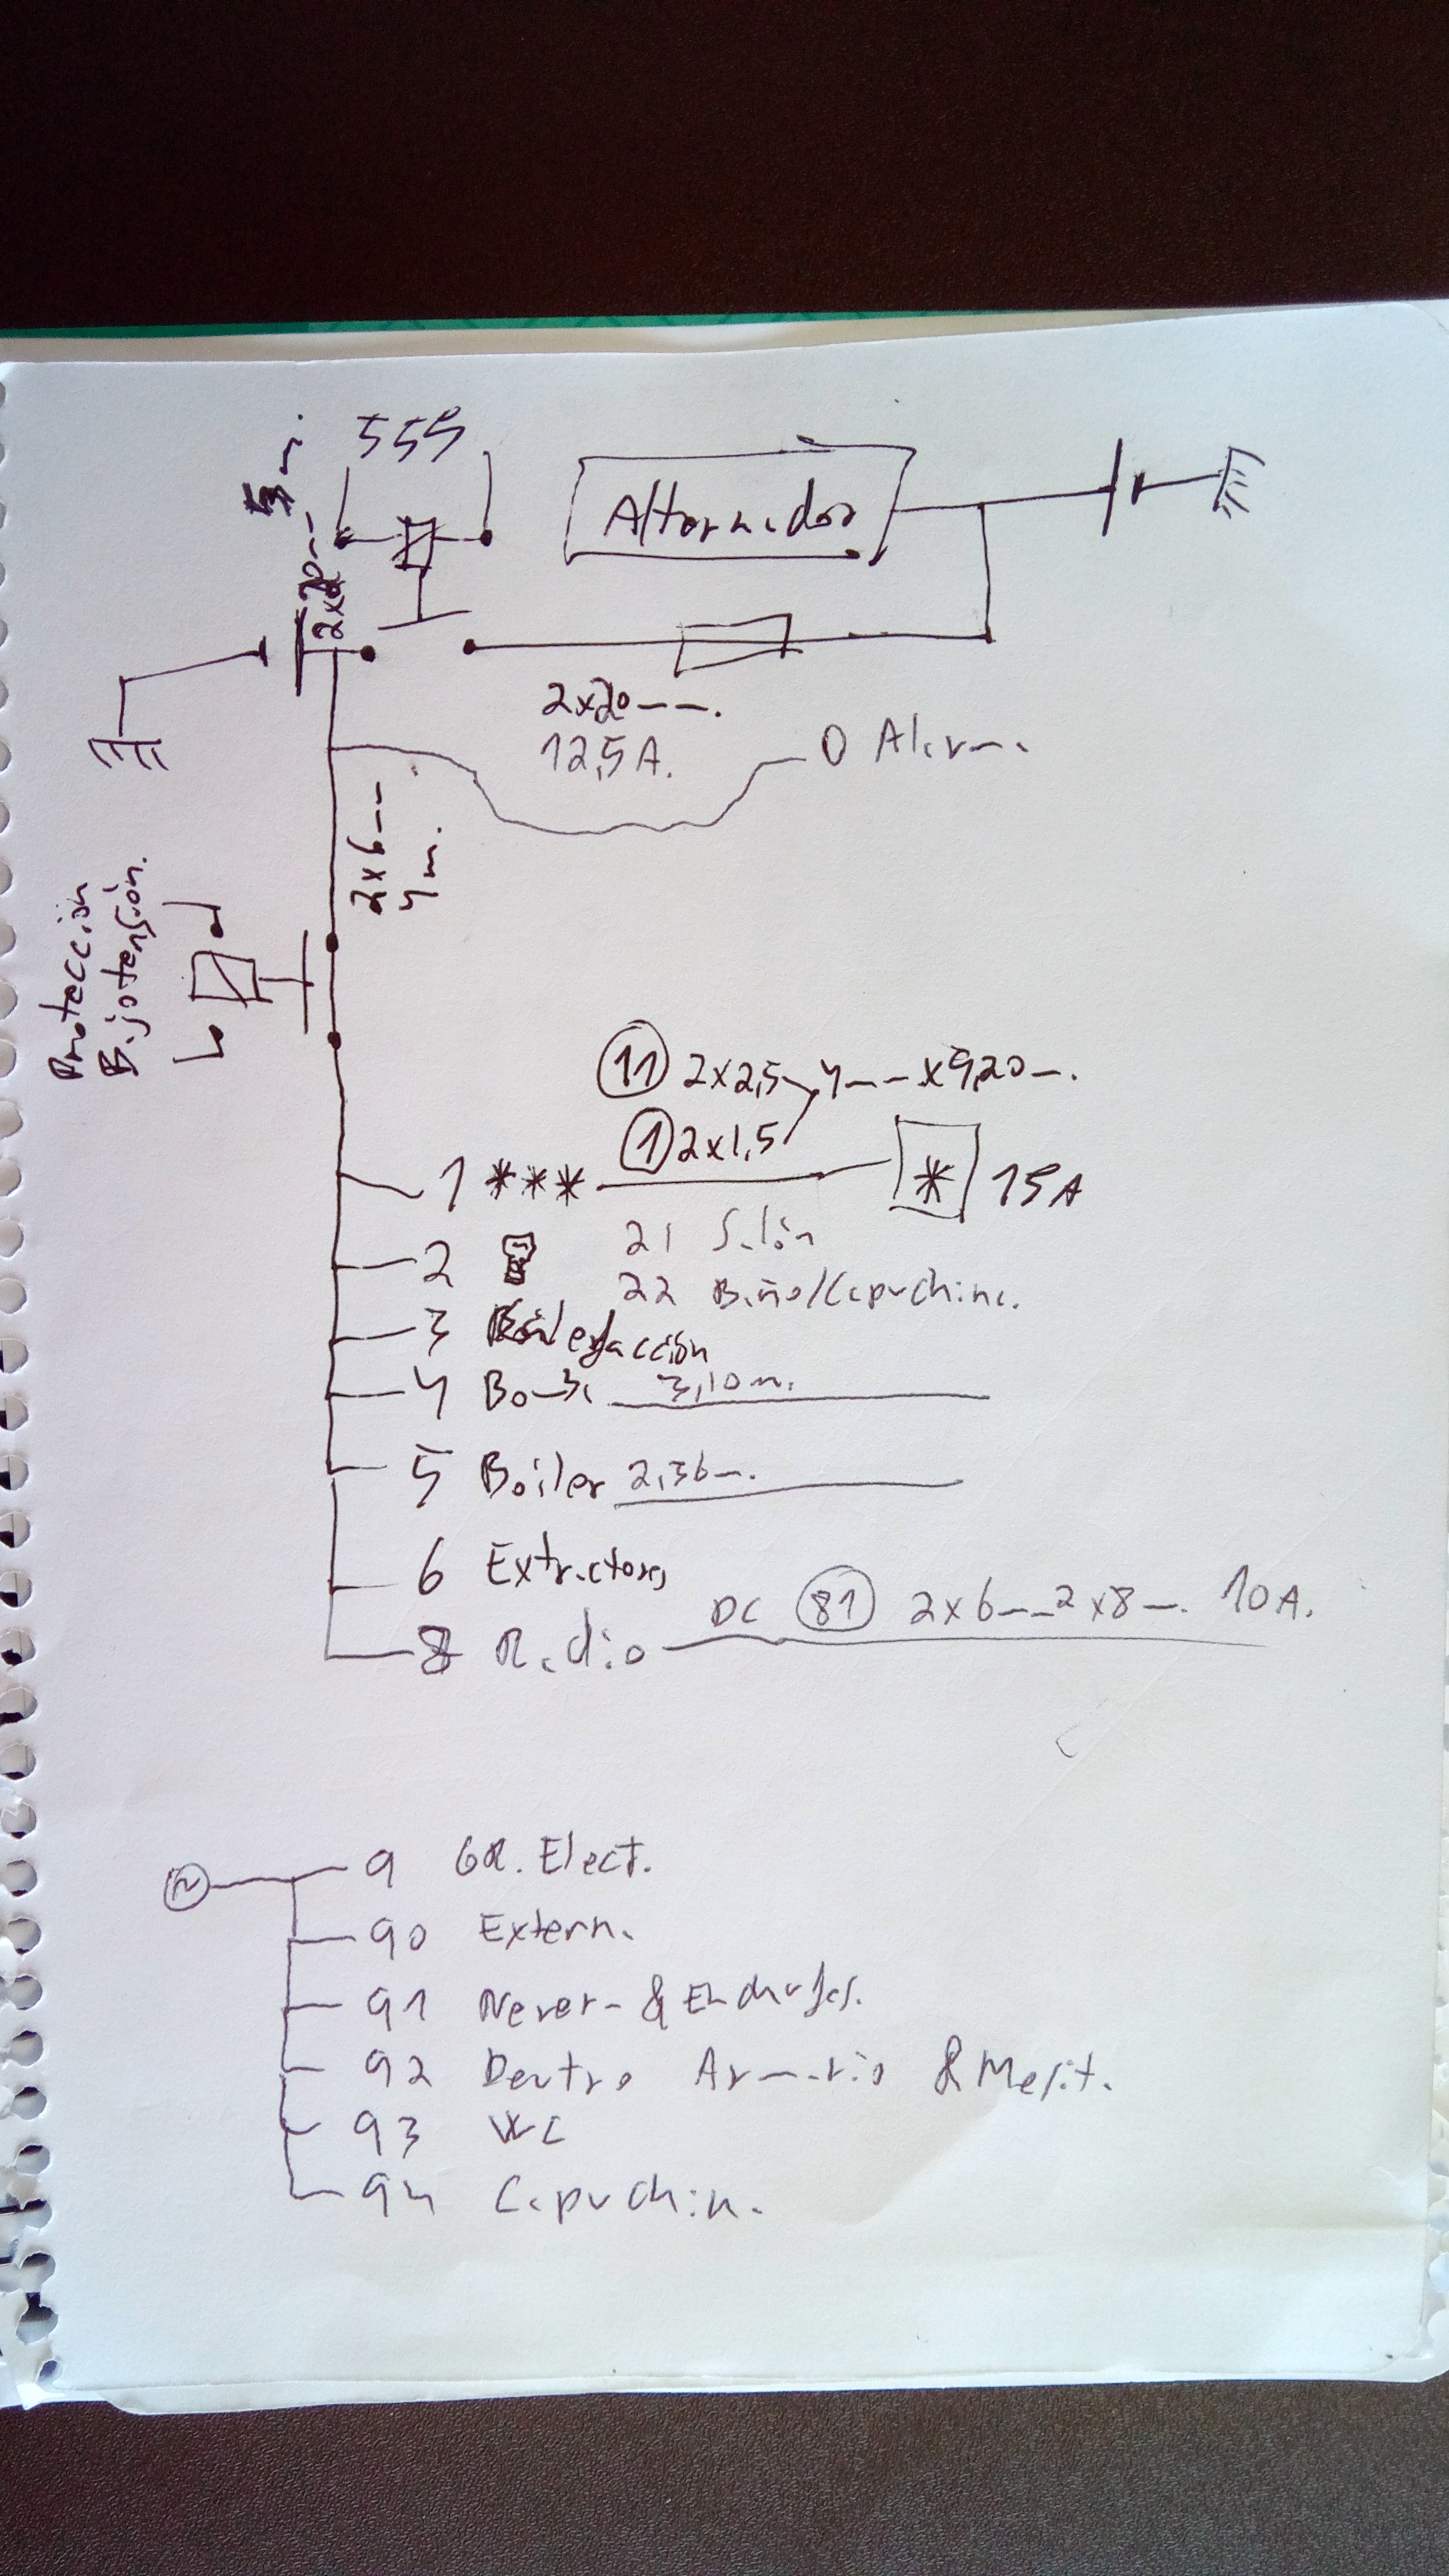 555
5m.
Alternador
2x20mm
2x20mm.
12,5A.
0 Alarma
2x6mm
4m.
Protección
Bajotensión.
11 2x2,5
4mm x 9,20m.
1 2x1,5
1 *** * 15A
2 21 Salón
22 Baño/Capuchina.
3 Calefacción
4 Bomba 3,10m.
5 Boiler 2,36m.
6 Extractores
8 Radio DC 81 2x6mm2 x8m. 10A.
9 GR. Elect.
90 Externa
91 Nevera & Enchufes.
92 Dentro Armario & Mesita.
93 WC
94 Capuchina